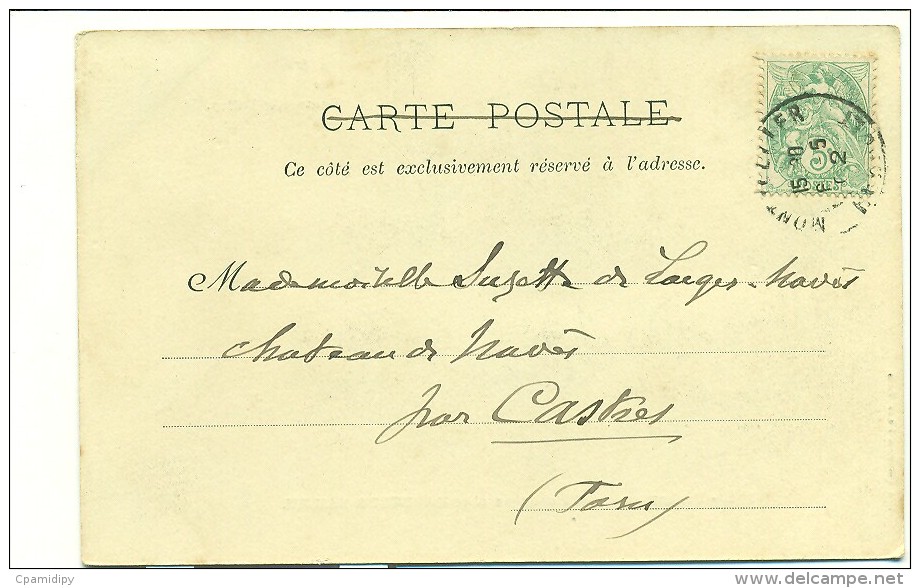 CARTE POSTALE
Ce côté est exclusivement réservé à l'adresse.
5
MONTPELLIER
15 30
Mademoiselle Suzette de Larges Navès
Chateau de Navès
par Castres
(Tarn)
Cpamidipy
www.delcampe.net